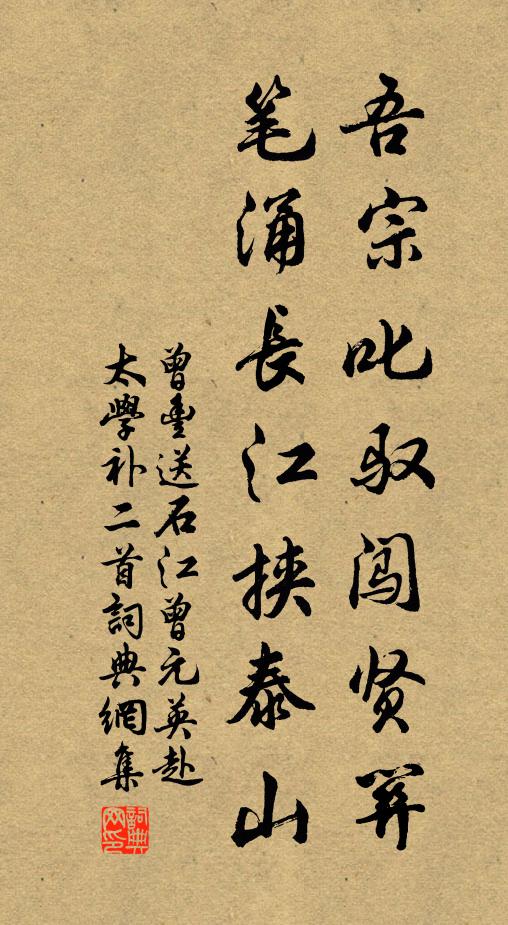 吾宗叱驭闯贤關
笔涌長江挟泰山
曾豊送石江曾元英赴
太學补二首詞典網集
詞典
网印